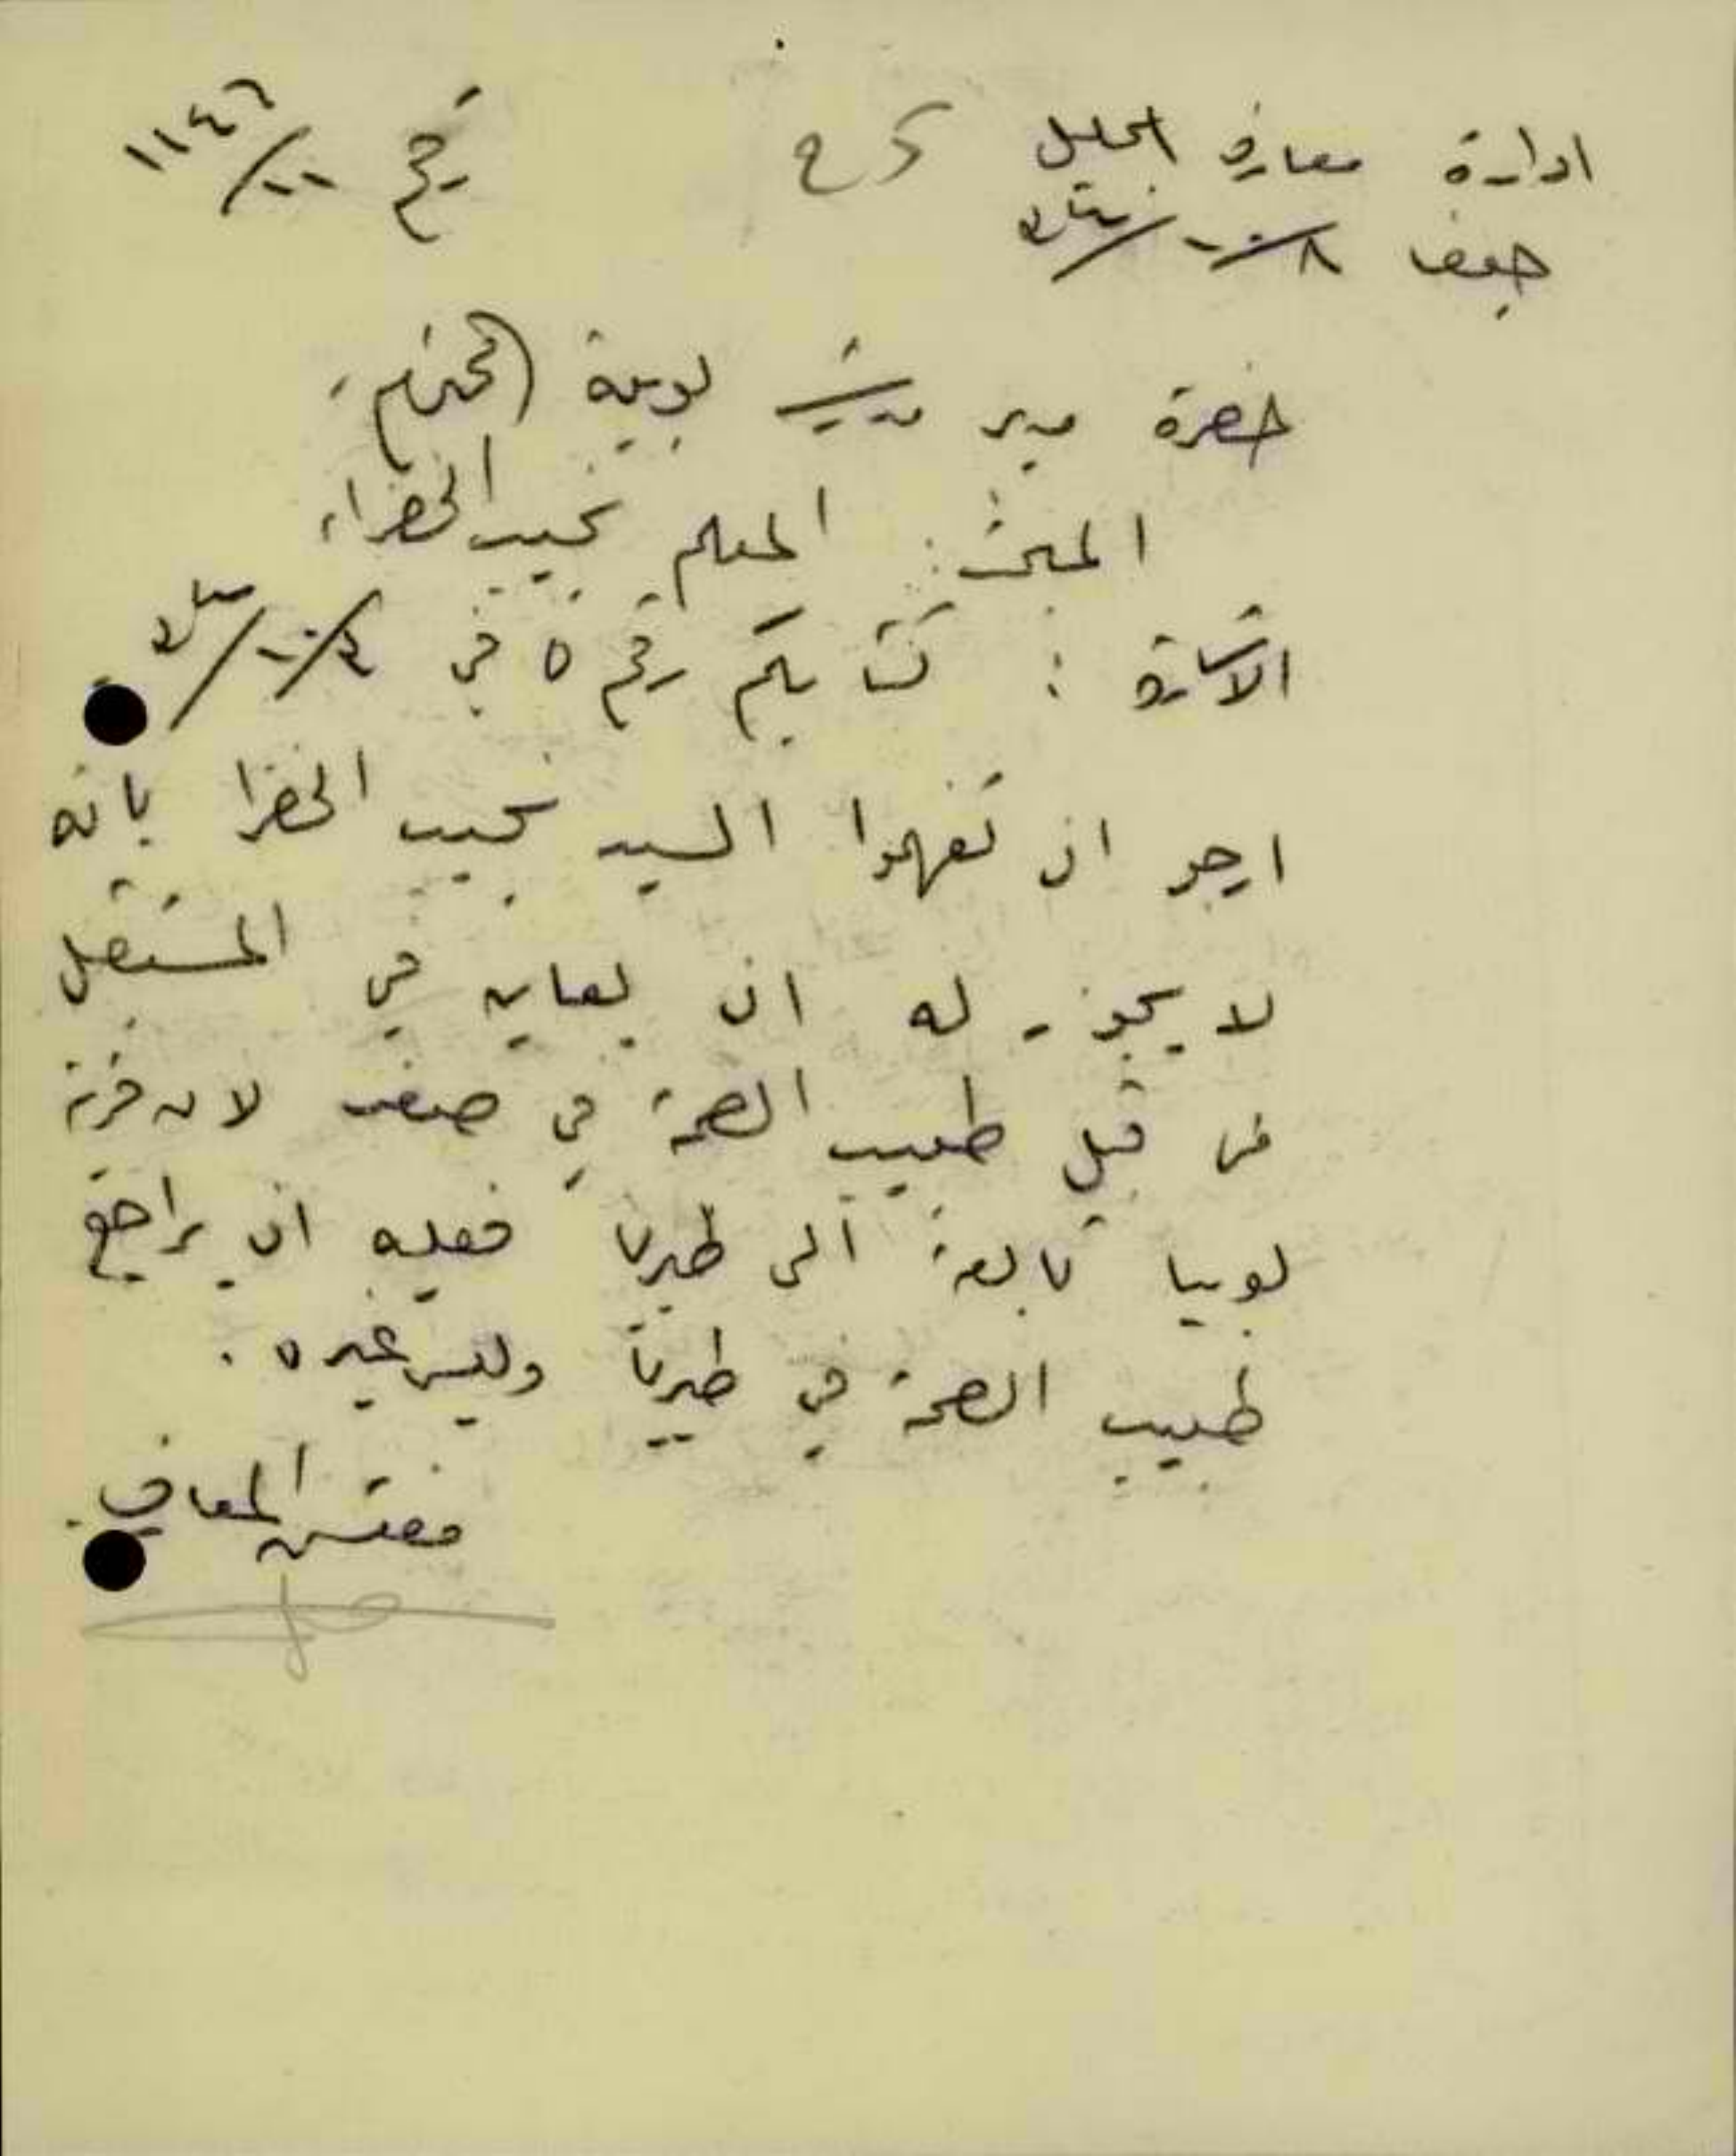 ادارة معارف الجليل
رقم ١١٤٦
حيفا
حضرة مدير مدرسة لوبية المحترم
المبحث : المعلم نجيب الخضراء
الاشارة : كتابكم رقم ٥ في
ارجو ان تفهموا السيد نجيب الخضرا بانه
لا يجوز له ان يعاين في المستقبل
من قبل طبيب الصحة في صفد لان قرية
لوبيا تابعة الى طبريا فعليه ان يراجع
طبيب الصحة في طبريا وليس غيره .
مفتش المعارف